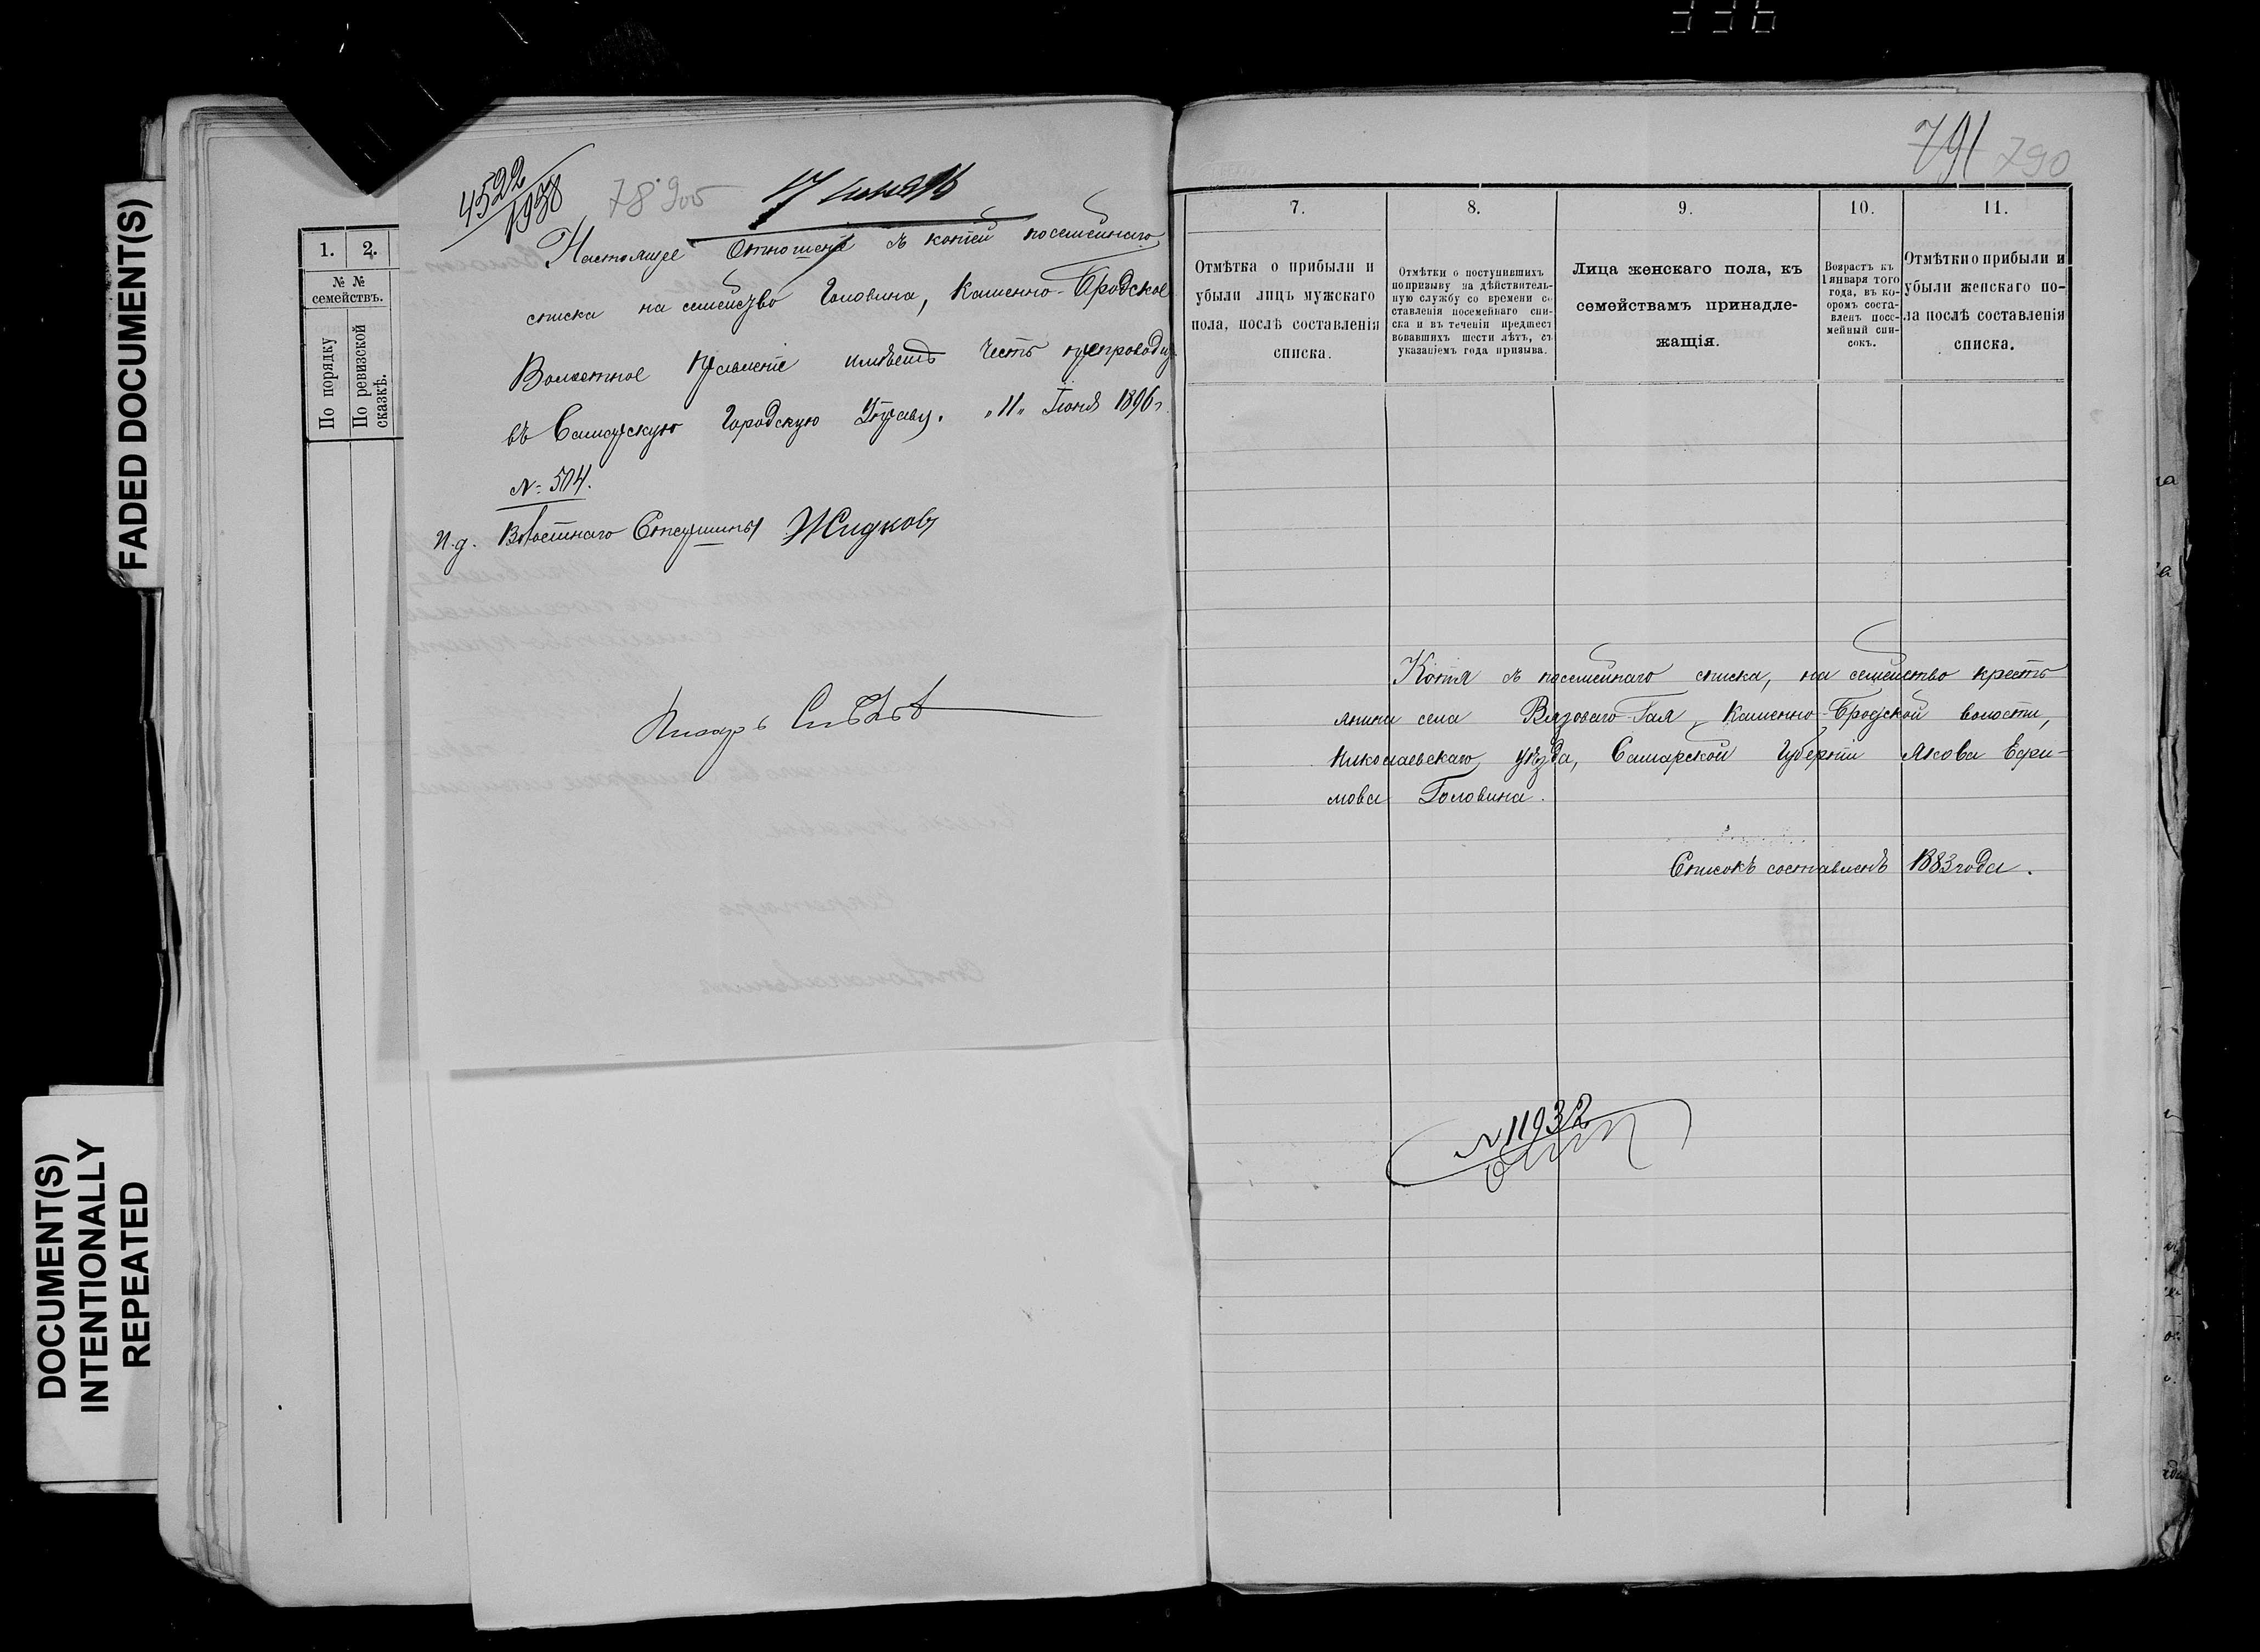 336
FADED DOCUMENT(S)
DOCUMENT(S)
INTENTIONALLY
REPEATED
1.
2.
№ №
семействъ.
По порядку
По ревизской
сказкѣ.
4522
1938
78 905
17 июня 96
Настоящее Отношеніе съ копіей посемейнаго
списка на семейство Головина, Каменно-Бродское
Волостное Правленіе имѣетъ честь препроводить
въ Самарскую Городскую Управу. „11„ Іюня 1896 г.
№ 504.
И. д. Волостнаго Старшины Жидковъ
Писарь
791 790
7.
8.
9.
10.
11.
Отмѣтка о прибыли и
убыли лицъ мужскаго
пола, послѣ составленія
списка.
Отмѣтки о поступившихъ
по призыву на дѣйствитель-
ную службу со времени со
ставленія посемейнаго спи-
ска и въ теченіи предшест
вовавшихъ шести лѣтъ, съ
указаніемъ года призыва.
Лица женскаго пола, къ
семействамъ принадле-
жащія.
Возрастъ къ
1 января того
года, въ ко-
оромъ соста-
вленъ посе-
мейный спи-
сокъ.
Отмѣтки о прибыли и
убыли женскаго по-
ла послѣ составленія
списка.
Копія съ посемейнаго списка, на семейство кресть
янина села Вязоваго-Гая, Каменно-Бродской волости,
Николаевскаго уѣзда, Самарской Губерніи Якова Ефи-
мова Головина.
Списокъ составленъ 1883 года.
№ 11932